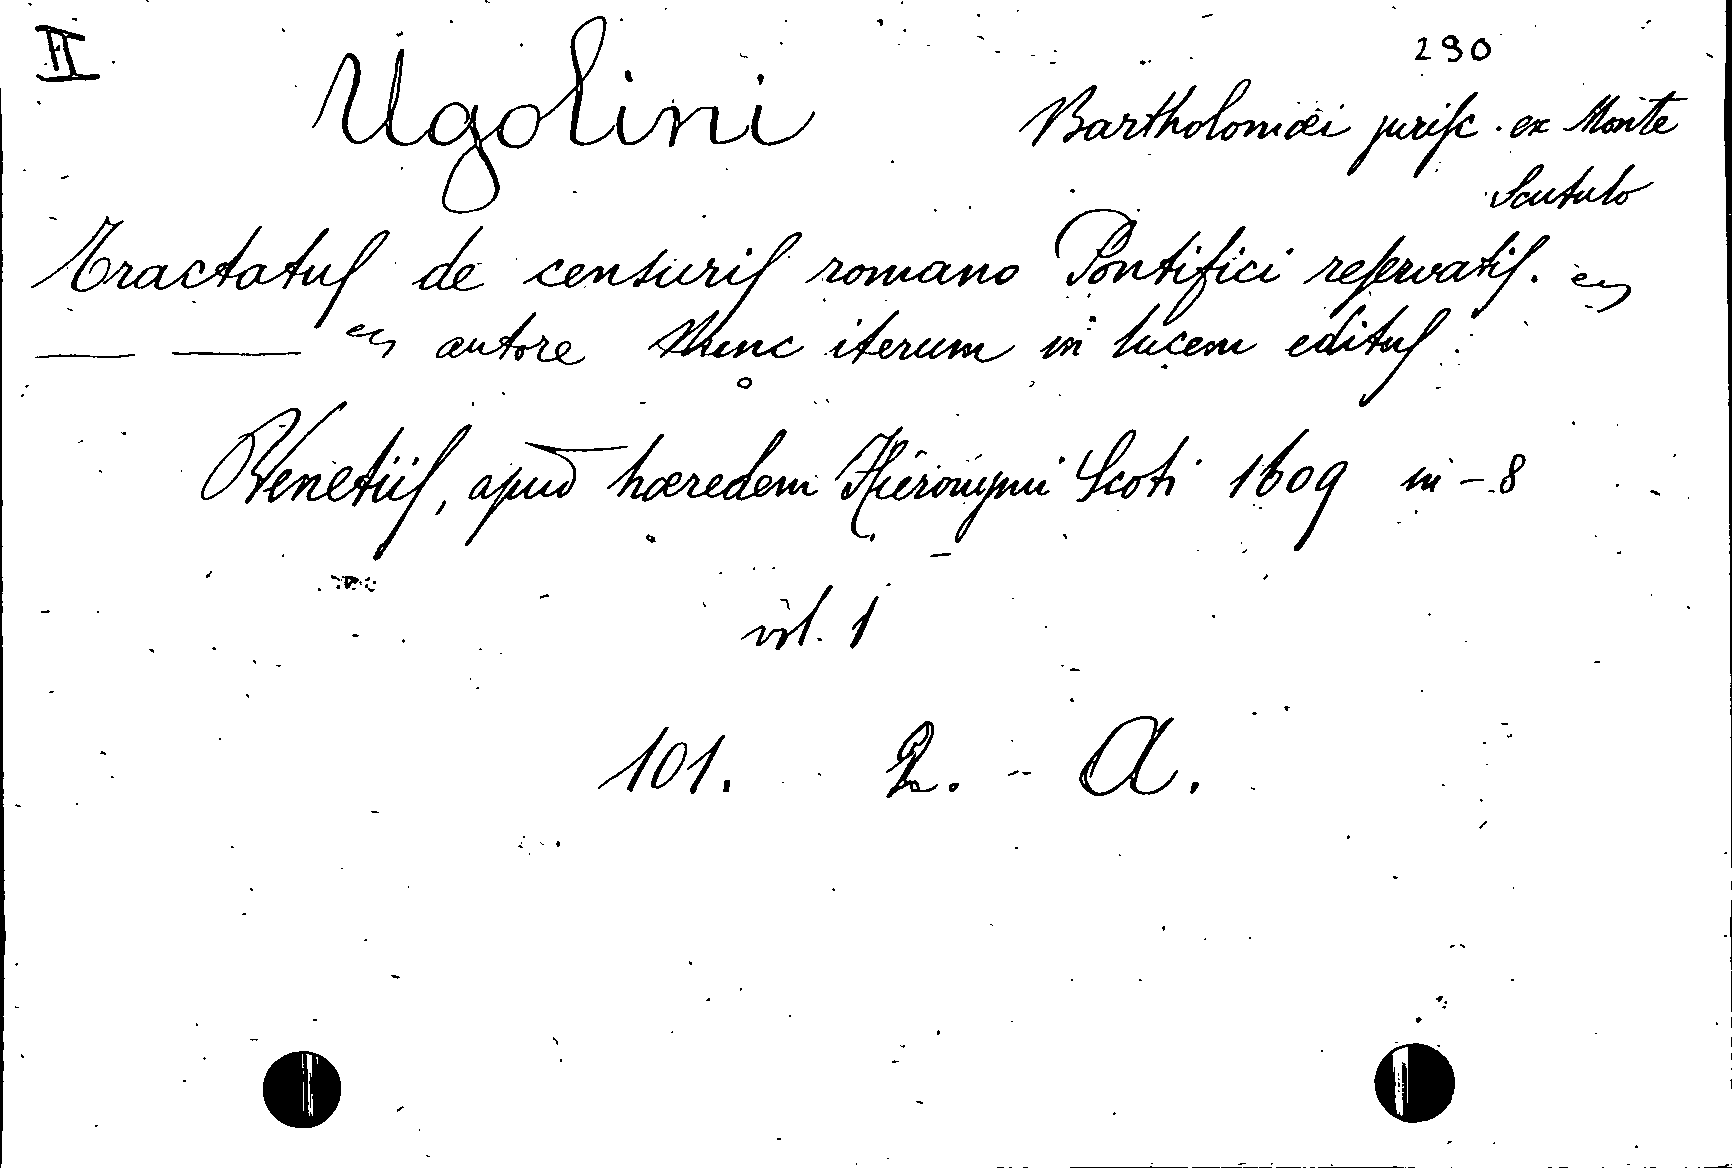 II
290
Ugolini Bartholomæi jurisc. ex Monte
Scutulo
Tractatus de censuris romano Pontifici reservatis.
autore Nunc iterum in lucem editus
Venetiis, apud hæredem Hieronymi Scoti 1609 in-8
vol. 1
101. 2. A.